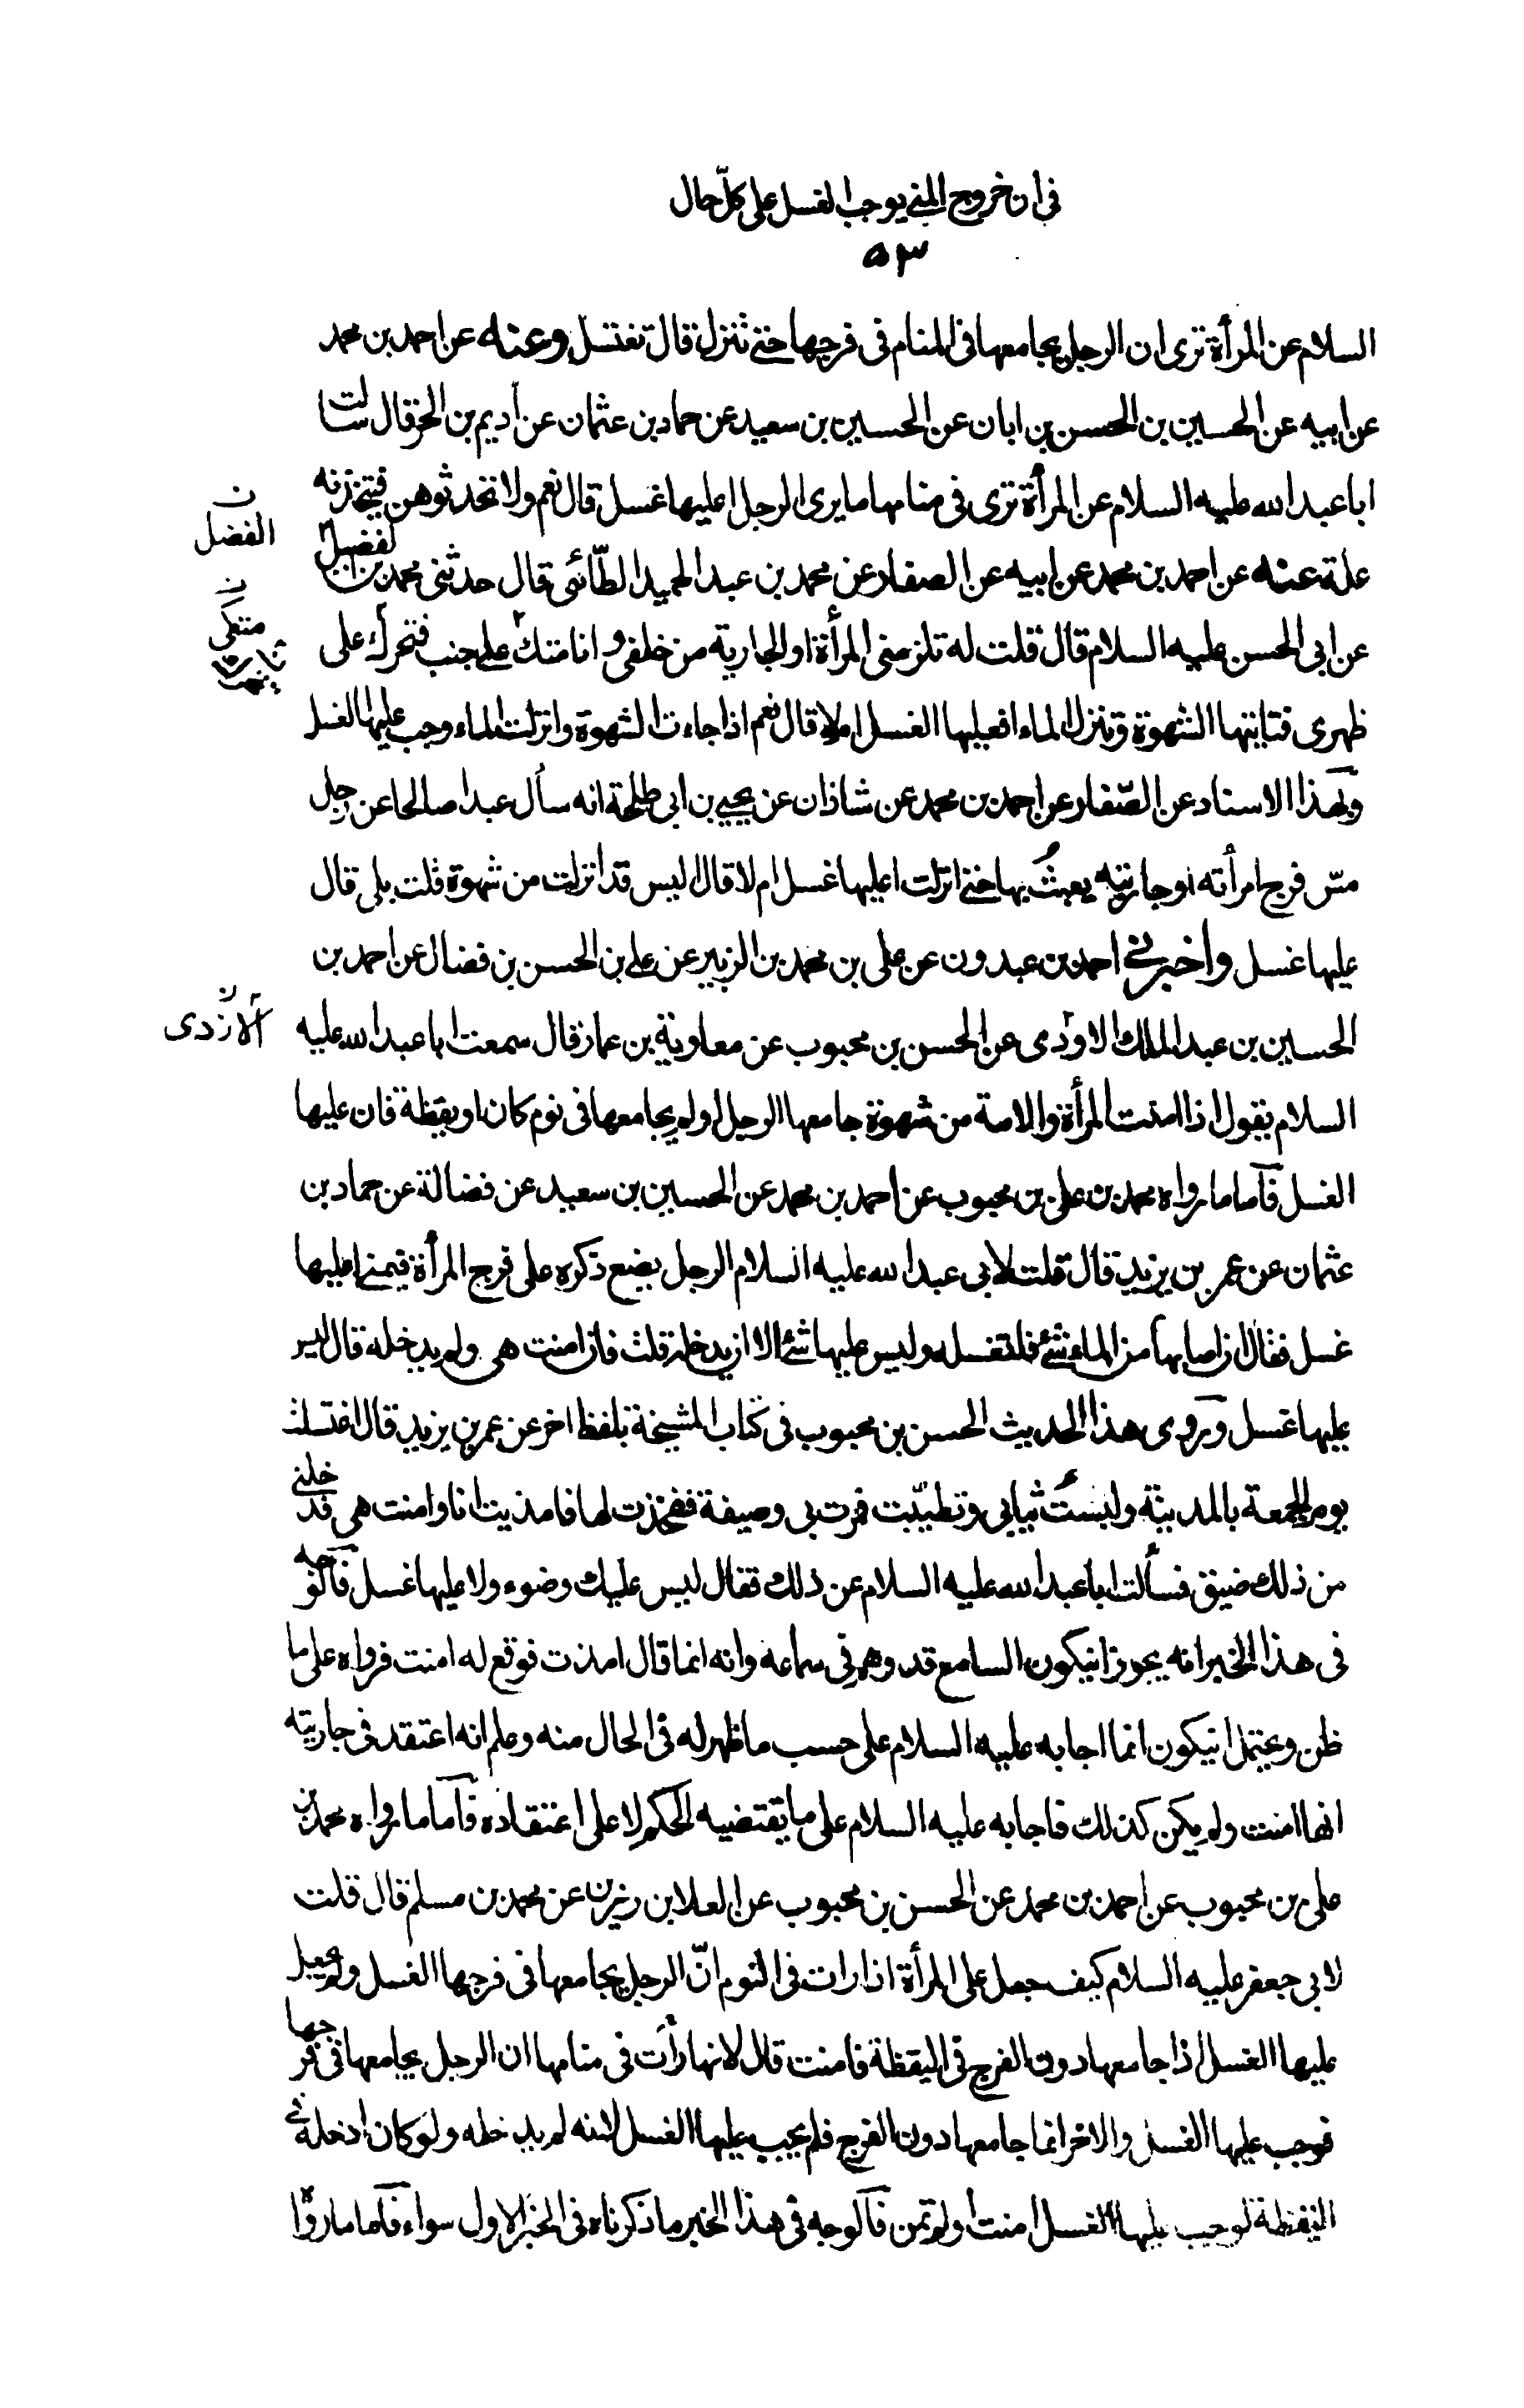 في ان خروج المني يوجب الغسل على كلّ حال
٥٣
السلام عن المرأة ترى ان الرجل يجامعها في المنام في فرجها حتى تنزل قال تغتسل وعنه عن احمد بن محمد
عن ابيه عن الحسين بن الحسن بن ابان عن الحسين بن سعيد عن حماد بن عثمان عن أديم بن الحر قال سالت
ابا عبد الله عليه السلام عن المرأة ترى في منامها ما يرى الرجل اعليها غسل قال نعم ولا تحدثوهن فيتخذنه
ن
الفضل
علة عنه عن احمد بن محمد عن ابيه عن الصفار عن محمد بن عبد الحميد الطّائي قال حدثني محمد بن الفضيل
ن
متكى
عن ابي الحسن عليه السلام قال قلت له تلزمني المرأة او الجارية من خلفي وانا متكئ على جنب فتحرك على
ظهري فتاتيها الشهوة وتنزل الماء افعليها الغسل ام لا قال نعم اذا جاءت الشهوة وانزلت الماء وجب عليها الغسل
وبهذا الاسناد عن الصّفار عن احمد بن محمد عن شاذان عن يحيى بن ابي طلحة انه سأل عبدا صالحا عن رجل
مسّ فرج امرأته او جاريته يعبث بها حتى انزلت اعليها غسل ام لا قال اليس قد انزلت من شهوة قلت بلى قال
عليها غسل واخبرني احمد بن عبدون عن علي بن محمد بن الزبير عن علي بن الحسن بن فضال عن احمد بن
ن
الازدى
الحسين بن عبد الملك الاودى عن الحسن بن محبوب عن معاوية بن عمار قال سمعت ابا عبد الله عليه
السلام يقول اذا امنت المرأة والامة من شهوة جامعها الرجل او لم يجامعها في نوم كان او يقظة فان عليها
الغسل فاما ما رواه محمد بن علي بن محبوب عن احمد بن محمد عن الحسين بن سعيد عن فضالة عن حماد بن
عثمان عن عمر بن يزيد قال قلت لابي عبد الله عليه السلام الرجل يضع ذكره على فرج المرأة فيمنى اعليها
غسل فقال ان اصابها من الماء شئ فلتغسله وليس عليها شئ الا ان يدخله قلت فان امنت هي ولم يدخله قال ليس
عليها غسل وروى هذا الحديث الحسن بن محبوب في كتاب المشيخة بلفظ اخر عن عمر بن يزيد قال اغتسلت
يوم الجمعة بالمدينة ولبستُ ثيابي وتطيّبت فمرت بي وصيفة ففخذت لها فامذيت انا وامنت هي فدخلني
من ذلك ضيق فسألت ابا عبد الله عليه السلام عن ذلك فقال ليس عليك وضوء ولا عليها غسل فالوجه
في هذا الخبر انه يجوز ان يكون السامع قد وهم في سماعه وانه انما قال امذت فوقع له امنت فرواه على ما
ظن ويحتمل ان يكون انما اجابه عليه السلام على حسب ما ظهر له في الحال منه وعلم انه اعتقد في جاريته
انها امنت ولم يكن كذلك فاجابه عليه السلام على ما يقتضيه الحكم لا على اعتقاده فاما ما رواه محمد بن
علي بن محبوب عن احمد بن محمد عن الحسن بن محبوب عن العلا بن رزين عن محمد بن مسلم قال قلت
لابي جعفر عليه السلام كيف جعل على المرأة اذا رات في النوم انّ الرجل يجامعها في فرجها الغسل ولم يجعل
عليها الغسل اذا جامعها دون الفرج في اليقظة فامنت قال لانها رأت في منامها ان الرجل يجامعها في فرجها
فوجب عليها الغسل والاخر انما جامعها دون الفرج فلم يجب عليها الغسل لانه لم يدخله ولو كان ادخله في
اليقظة لوجب عليها الغسل امنت او لم تمن فالوجه في هذا الخبر ما ذكرناه في الخبر الاول سواء فاما ما رواه